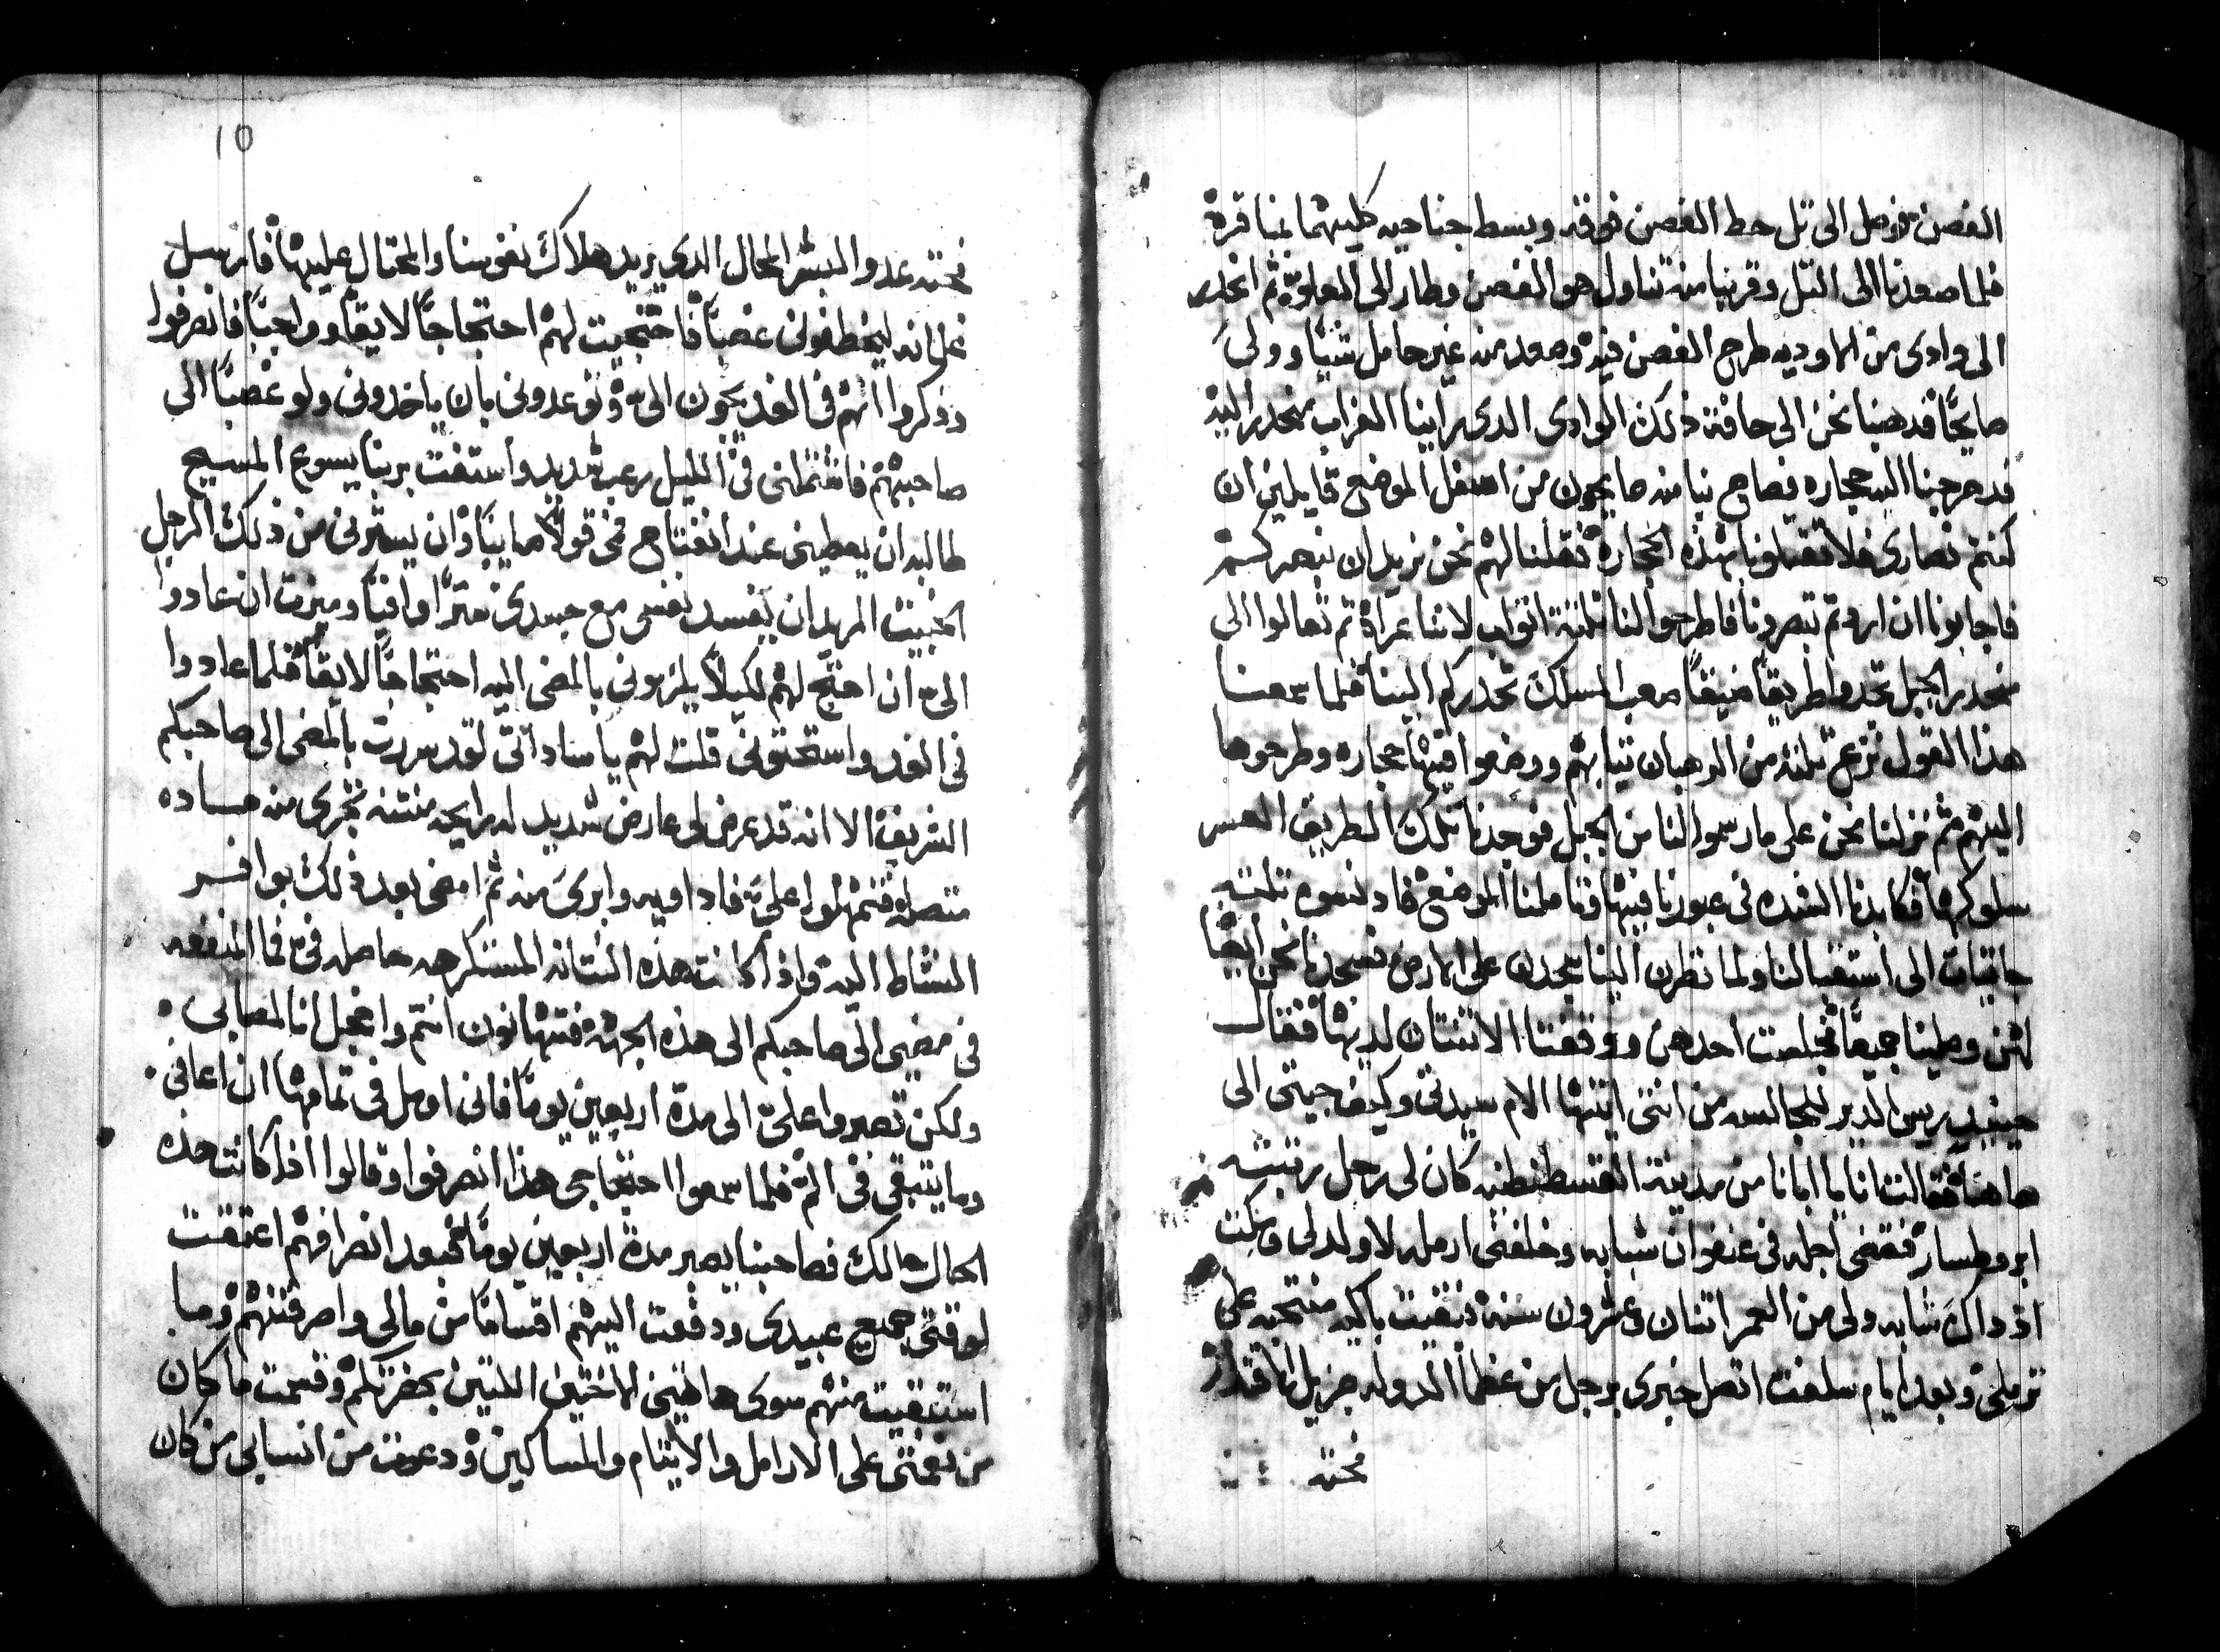 الغصن فوصل الى تل حط الغصن فوقه وبسط جناحيه كليهما بمناقره
فلما صعدنا الى التل وقربنا منه تناول هو الغصن وطار الى العلوّ ثم انحدر
الى وادى من الاوديه طرح الغصن فيه وصعد منه غير حامل شيًا وولى
صايحًا فدهبنا نحن الى حافة ذلك الوادى الدى راينا الغراب منحدر اليه
فدحرجنا اليه حجاره فصاح بنا منه صايحون من اسفل الموضع قايلين ان
كنتم نصارى فلا تقتلونا بهذه الحجارة فقلنا لهم نحن نريد ان نبصركم
فاجابونا ان اردتم تبصرونا فاطرحوا لنا ثلثة اثواب لاننا عراة ثم تعالوا الى
منحدر الجبل تجدوا طريقًا ضيقًا صعب المسلك تحدركم الينا فلما سمعنا
هذا القول نزع ثلثه من الرهبان ثيابهم ووضعوا فيها حجاره وطرحوها
اليهم ثم نزلنا نحن على ما رسموا لنا من الجبل فوجدنا تلك الطريق العسر
سلوكها فكابدنا الشده فى عبورنا فيها وتاملنا الموضع فاد نسوه ثلثه
جاييات الى استقبالنا ولما نظرن الينا سجدن على الارض فسجدنا نحن ايضًا
لهن وصلينا جميعًا فجلست احدهن ووقفتا الاثنتان لديها فقال
حينيد ريس الدير للجالسه من انتى ايتها الام سيدتى وكيف جيتى الى
هاهنا فقالت انا يا ابانا من مدينة القسطنطنيه كان لى رجل رتبته
ابروطسار فقضى اجله فى عنفوان شبابه وخلفنى ارمله لا ولد لى وكنت
اذ داك شابه ولى من العمر اثنان وعشرون سنه فبقيت باكيه منتحبه على
ترملى وبعد ايام سلفت اتصل خبرى برجل من عظما الدوله جزيل الاقتدار
محته
محته عدو البشر المحال الدى يريد هلاك نفوسنا والمحتال عليها فارسل
غلمانه ليخطفونى غصبًا فاحتجيت لهم احتجاجًا لايقًا وواجبًا فانصرفوا
وذكروا انهم فى الغد يجون الىّ وتوعدونى بان ياخدونى ولو غصبًا الى
صاحبهم فاشتملنى فى الليل رعب شديد واستغت بربنا يسوع المسيح
طالبه ان يعطينى عند انفتاح فمى قولًا صايبًا وان يسترنى من ذلك الرجل
الخبيت المريد ان يفسد نفسى مع جسدى سترًا وافيًا وميزت ان عادوا
الىّ ان احتج لهم لكيلا يلزمونى بالمضى اليه احتجاجًا لايقًا فلما عادوا
فى الغد واستحتونى قلت لهم يا ساداتى لقد سررت بالمضى الى صاحبكم
الشريف الا انه قد عرض لى عارض شديد له رايحه منتنه تجرى منه مساده
متصله فتمهلوا علىّ فاداويه وابرى منه ثم امضى بعد ذلك بوافر
النشاط اليه واذا كانت هذه النتانه المستكرهه حاصله فى فما المنفعه
فى مضيى الى صاحبكم الى هذه الجهه فتتهانون انتم وانخجل انا لمصابى
ولكن تصبروا علىّ الى مدة اربعين يومًا فانى اومل فى تمامها ان اعافى
وما يتبقى فى الم فلما سمعوا احتجاجى هذا انصرفوا وقالوا اذا كانت هذه
الحال حالك فصاحبنا يصبر مدة اربعين يومًا فبعد انصرافهم اعتقت
لوقتى جميع عبيدى ودفعت اليهم اقسامًا من مالى واصرفتهم وما
استبقيت منهم سوى هاتين الاختين اللتين بحضرتكم وقسمت ما كان
من نعمتى على الارامل والايتام والمساكين ودعوت من انسابى من كان